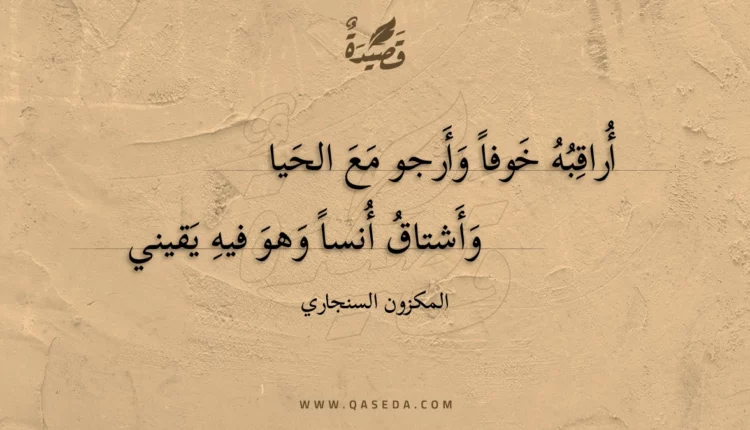 قَصِيدَةٌ
أُراقِبُهُ خَوفاً وَأَرجو مَعَ الحَيا
وَأَشتاقُ أُنساً وَهوَ فيهِ يَقيني
المكزون السنجاري
WWW.QASEDA.COM